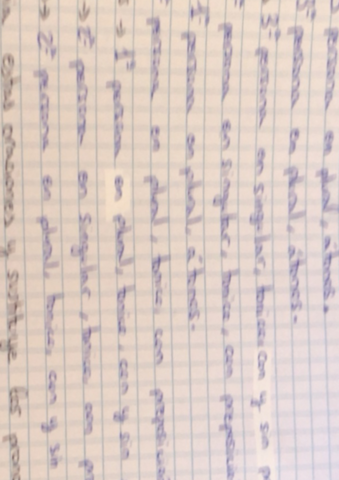 persona en plural, átonos.
persona en plural, átonos.
3ª persona en singular, tónico con y sin p
persona en singular, tónico, con
persona en plural, átonos.
persona en plural, tónico con
→ 1ª persona en plural, tónico, con y sin
→ persona en singular, tónico con pr
→ 2ª persona en plural, tónico, con y sin
estos pronombres y sustituye los pron